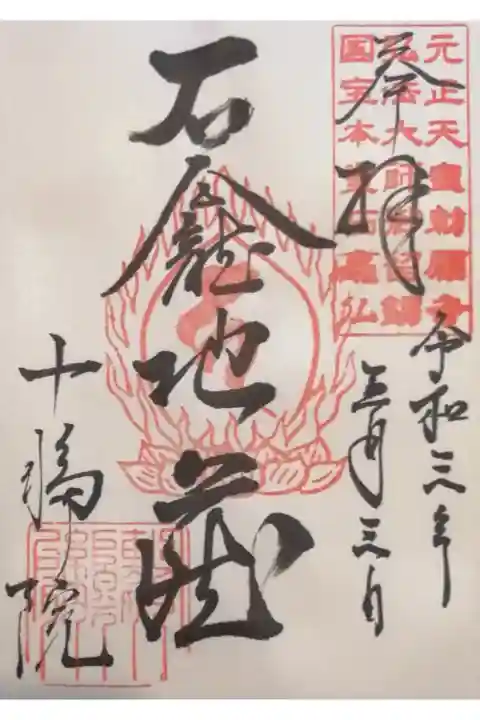 元正天皇勅願寺
弘法大師留錫
国宝本堂石龕仏
奉拝
令和三年
三月三日
石龕地蔵
十輪院